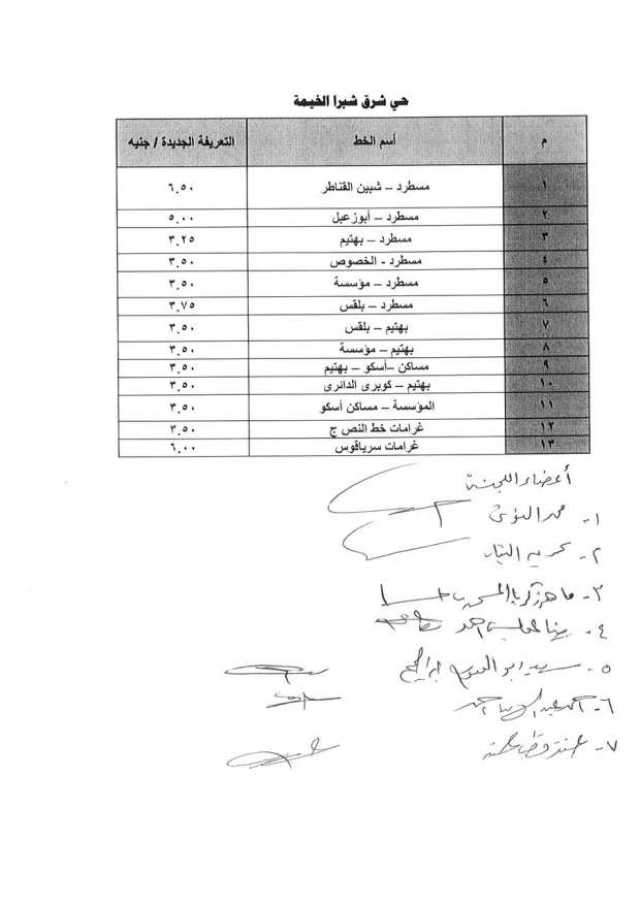 حي شرق شبرا الخيمة
م أسم الخط التعريفة الجديدة / جنيه
١ مسطرد – شبين القناطر ٦,٥٠
٢ مسطرد – أبوزعبل ٥,٠٠
٣ مسطرد – بهتيم ٣,٢٥
٤ مسطرد - الخصوص ٣,٥٠
٥ مسطرد – مؤسسة ٣,٥٠
٦ مسطرد – بلقس ٣,٧٥
٧ بهتيم – بلقس ٣,٥٠
٨ بهتيم – مؤسسة ٣,٥٠
٩ مساكن –أسكو – بهتيم ٣,٥٠
١٠ بهتيم – كوبرى الدائرى ٣,٥٠
١١ المؤسسة – مساكن أسكو ٣,٥٠
١٢ غرامات خط النص ج ٣,٥٠
١٣ غرامات سرياقوس ٦,٠٠
أعضاء اللجنة
١-
٢-
٣- ماهر زكريا
٤-
٥- سيد ابو
٦- احمد عبد
٧-